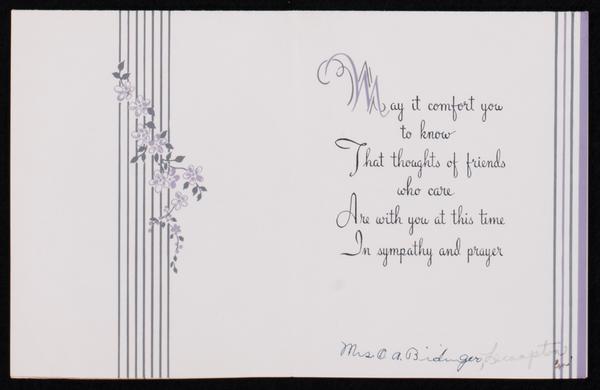 May it comfort you
to know
That thoughts of friends
who care
Are with you at this time
In sympathy and prayer
Mrs O A. Bidinger, Lecompton